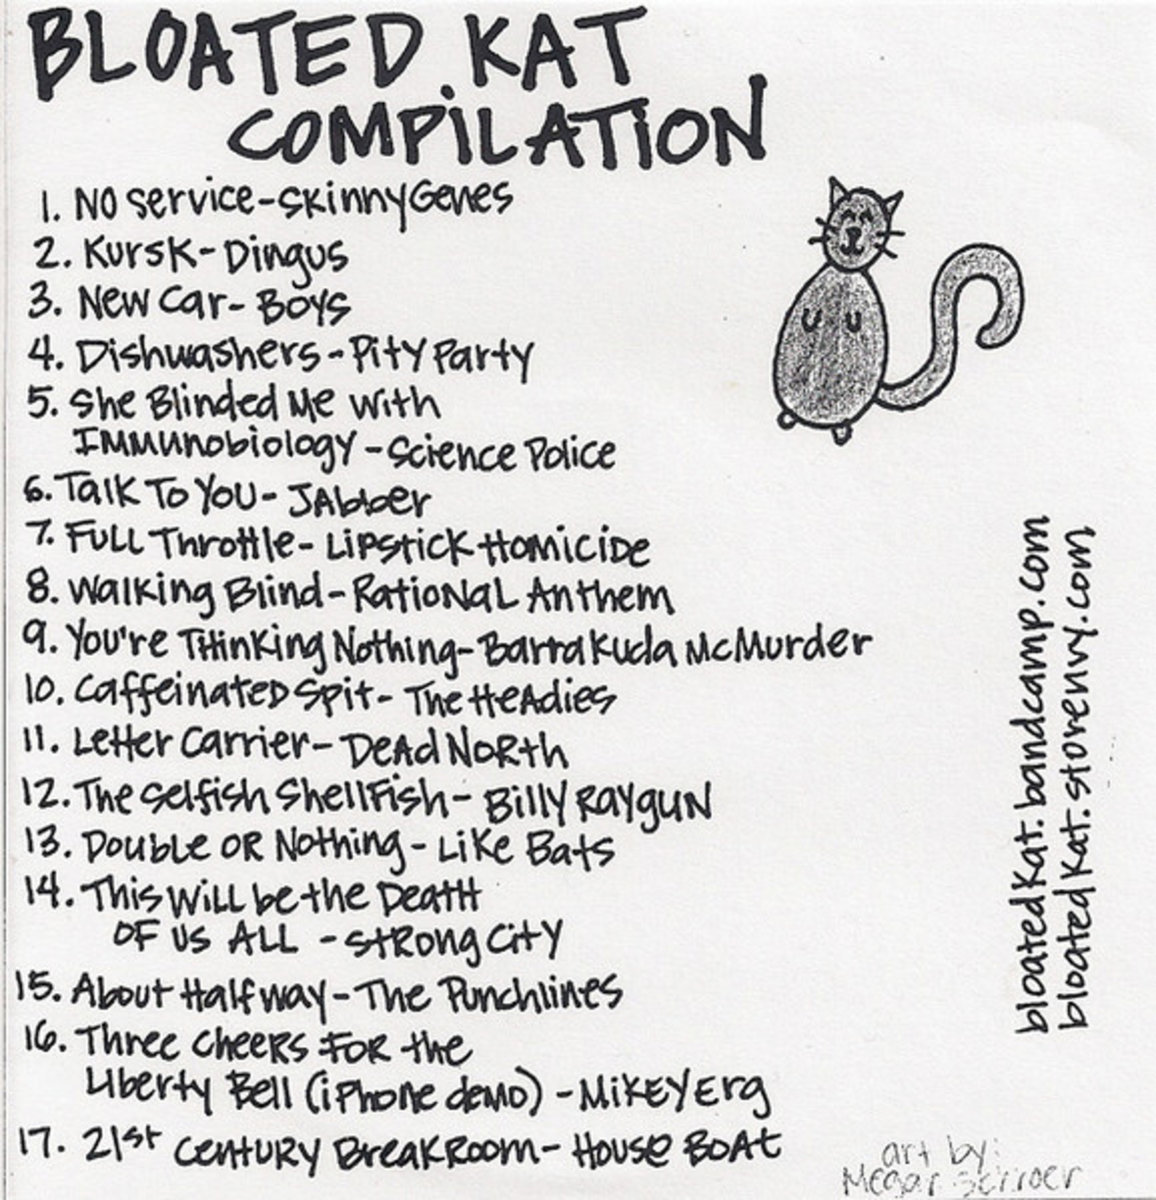 BLOATED KAT
COMPILATION
1. NO Service-SkinnyGenes
2. Kursk-Dingus
3. New Car-Boys
4. Dishwashers-Pity Party
5. She Blinded Me with
Immunobiology-Science Police
6. Talk To You-Jabber
7. Full Throttle-Lipstick Homicide
8. Walking Blind-Rational Anthem
9. You're Thinking Nothing-Barrakuda McMurder
10. Caffeinated Spit-The Headies
11. Letter Carrier-Dead North
12. The Selfish Shellfish-Billy Raygun
13. Double or Nothing-Like Bats
14. This Will be the Death
of us All -Strong City
15. About Halfway-The Punchlines
16. Three Cheers for the
Liberty Bell (iPhone demo) -Mikey Erg
17. 21st Century Breakroom-House Boat
bloatedkat.bandcamp.com
bloatedkat.storenvy.com
art by: